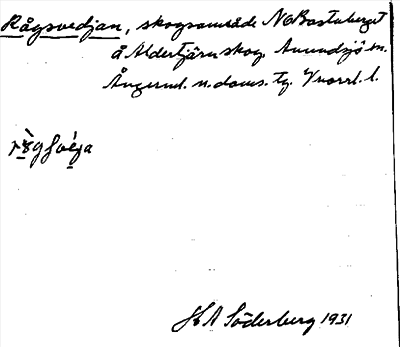 Rågsvedjan, skogsområde NO Bastuberget
å Aldertjärn skog. Anundsjö sn.
Ångerml. n. doms. tg. Vnorrl. l.
H A Söderberg 1931